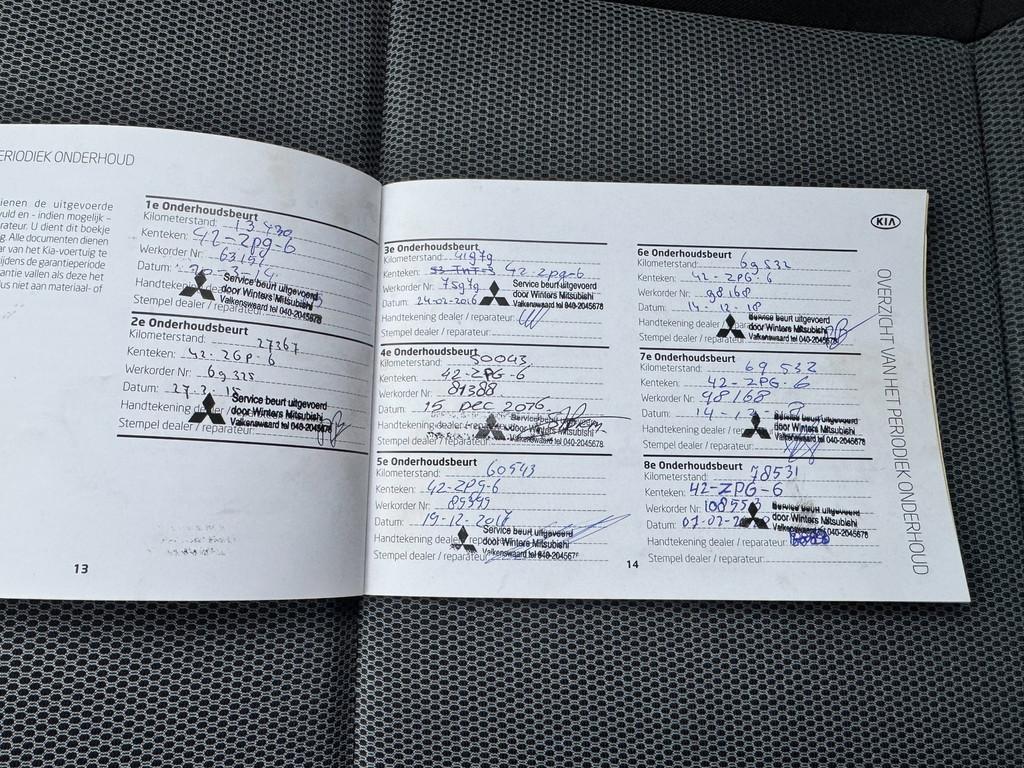 ERIODIEK ONDERHOUD
ienen de uitgevoerde
vuld en - indien mogelijk -
rateur. U dient dit boekje
g. Alle documenten dienen
ar van het Kia-voertuig te
ijdens de garantieperiode
antie vallen als deze het
lus niet aan materiaal- of
1e Onderhoudsbeurt
Kilometerstand: 13430
Kenteken: 42-zpg-6
Werkorder Nr: 63151
Datum:
Handteken
Stempel dealer / reparateur:
Service beurt uitgevoerd
door Winters Mitsubishi
Valkenswaard tel 040-2045678
2e Onderhoudsbeurt
Kilometerstand: 27367
Kenteken: 42-ZGP-6
Werkorder Nr: 69325
Datum: 27.2.15
Handtekening dealer / reparateur:
Stempel dealer / reparateur:
Service beurt uitgevoerd
door Winters Mitsubishi
Valkenswaard tel 040-2045678
13
3e Onderhoudsbeurt
Kilometerstand: 41979
Kenteken: 42-zpg-6
Werkorder Nr: 75979
Datum: 24-02-2016
Handtekening dealer / reparateur:
Stempel dealer / reparateur:
Service beurt uitgevoerd
door Winters Mitsubishi
Valkenswaard tel 040-2045678
4e Onderhoudsbeurt
Kilometerstand: 50043
Kenteken: 42-ZPG-6
Werkorder Nr: 81388
Datum: 15 DEC 2016
Handtekening dealer / reparateur:
Stempel dealer / reparateur:
Service beurt
door Winters Mitsubishi
Valkenswaard tel 040-2045678
5e Onderhoudsbeurt
Kilometerstand: 60543
Kenteken: 42-ZPG-6
Werkorder Nr: 89399
Datum: 19-12-2017
Handtekening dealer / reparateur:
Stempel dealer / reparateur:
Service beurt uitgevoerd
door Winters Mitsubishi
Valkenswaard tel 040-204567
KIA
6e Onderhoudsbeurt
Kilometerstand: 69532
Kenteken: 42-ZPG-6
Werkorder Nr: 98168
Datum: 14-12-18
Handtekening dealer
Stempel dealer / reparateur
Service beurt uitgevoerd
door Winters Mitsubishi
Valkenswaard tel 040-2045678
7e Onderhoudsbeurt
Kilometerstand: 69532
Kenteken: 42-ZPG-6
Werkorder Nr: 98168
Datum: 14-12
Handtekening dealer
Stempel dealer / reparateur:
Service beurt uitgevoerd
door Winters Mitsubishi
Valkenswaard tel 040-2045678
8e Onderhoudsbeurt
Kilometerstand: 78531
Kenteken: 42-ZPG-6
Werkorder Nr: 108553
Datum: 07-02-2
Handtekening dealer / reparateur:
Stempel dealer / reparateur:
Service beurt uitgevoerd
door Winters Mitsubishi
Valkenswaard tel 040-2045678
14
OVERZICHT VAN HET PERIODIEK ONDERHOUD